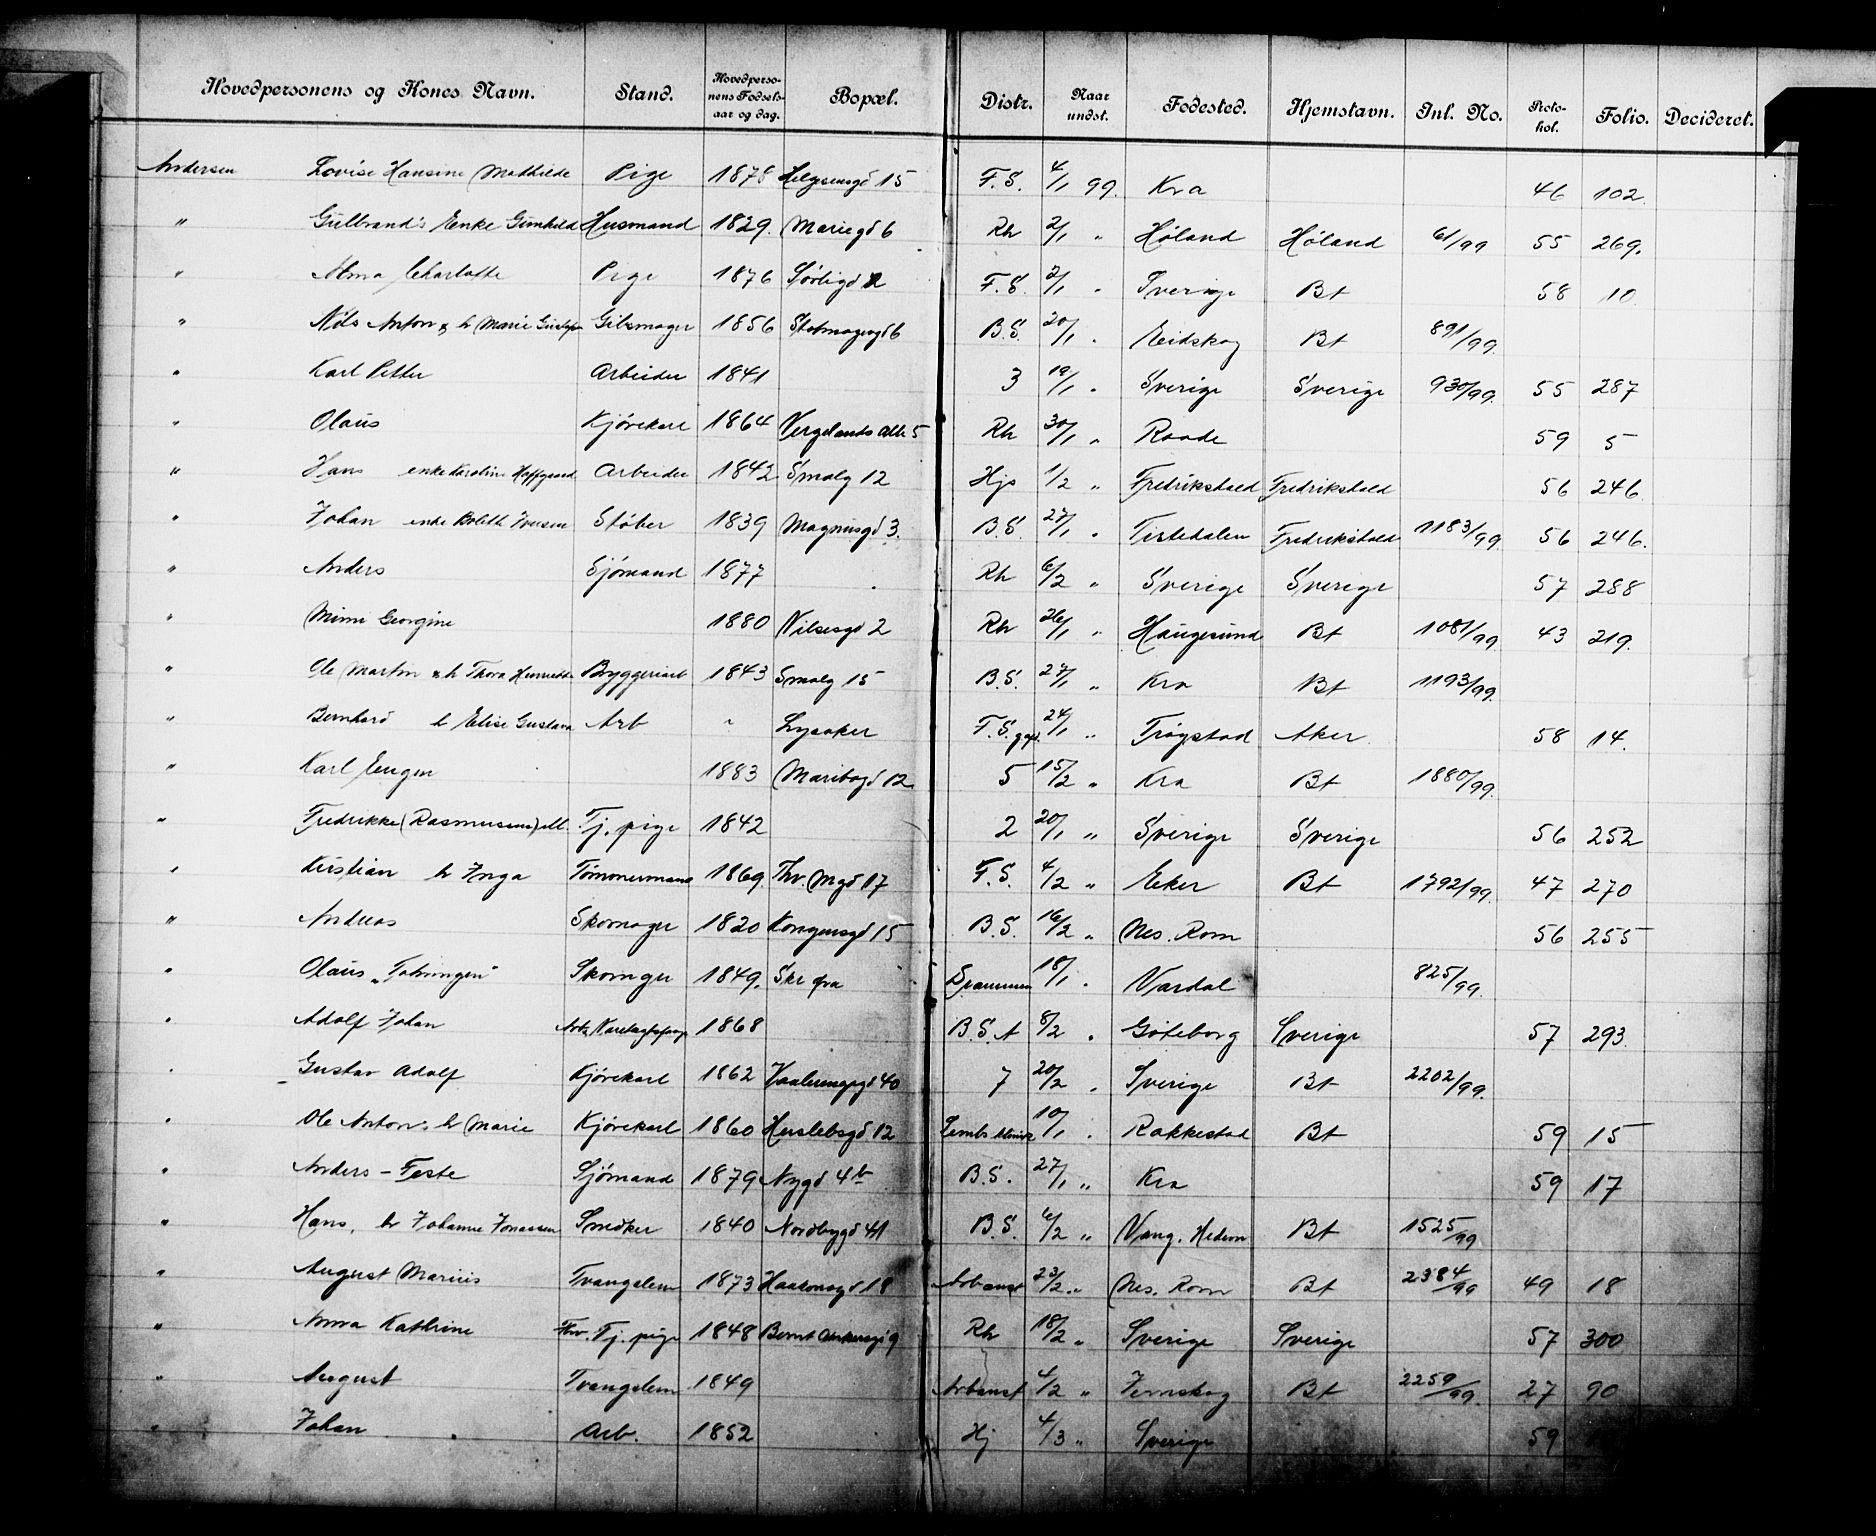 Hovedpersonens og Kones Navn. Stand. Hovedpersonens Fødselsaar og dag. Bopæl. Distr. Naar undst. Fødested. Hjemstavn. Inl. No. Protokol. Folio. Decideret.
Andersen Lovise Hansine Mathilde Pige 1878 Helgesensgd 15 F.S. 4/1 99. Kra 46 102
" Gulbrand's Enke Gunhild Husmand 1829. Mariegd 6 Rh 2/1 " Høland Høland 61/99 55 269.
" Alma Charlotte Pige 1876 Sørligd 2 F.S. 2/1 " Sverige Bt 58 10
" Nils Anton & h Marie Gibsmager 1856 6 B.S. 20/1 " Eidskog Bt 891/99. 
" Karl Petter Arbeider 1841 3 19/1 " Sverige Sverige 930/99. 55 287
" Olaus Kjørekarl 1864 Vergelands Alle 5 Rh 30/1 " Raade 59 5
" Hans enke Karoline Arbeider 1842 Smalg 12 Hjs 1/2 " Fredrikshald Fredrikshald 56 246
" Johan enke Boleth Jonsen Støber 1839 Magnusgd 3. B.S. 27/1 " Tistedalen Fredrikshald 1183/99. 56 246.
" Anders Sjømand 1877 Rh 6/2 " Sverige Sverige 57 288
" Mimi Georgine 1880 Vibesgd 2 Rh 26/1 " Haugesund Bt 1081/99 43 219.
" Ole Martin & h Thora Henriette Bryggeriarb 1843 Smalg 15 B.S. 27/1 " Kra Bt 1193/99.
" Bernhard h Elise Gustava Arb " Lysaker F.S. 24/1 " Trøgstad Aker 58 14.
" Karl Eugen 1883 Maribogd 12 5 15/2 " Kra Bt 1880/99.
" Fredrikke (Rasmussens) Tj. pige 1842 2 20/1 " Sverige Sverige 56 252
" Kristian h Inga Tømmermand 1869. Thv. Mgd 17 F.S. 4/2 " Eker Bt 1792/99. 47 270
" Andreas Skomager 1820 Kongensgd 15 B.S. 16/2 " Nes. Rom 56 255
" Olaus „Totningen“ Skomager 1849. Drammen 18/1 " Vardal 825/99.
" Adolf Johan 1868 B.S.A 8/2 " Gøteborg Sverige 57 293.
" Gustav Adolf Kjørekarl 1862 Vaalerenggd 40 7 20/2 " Sverige Bt 2202/99.
" Ole Anton & h Marie Kjørekarl 1860 Herslebsgd 12 10/1 " Rakkestad Bt 59 15
" Anders - Teste Sjømand 1879 Nygd 4b B.S. 27/1 " Kra 59 17
" Hans, h Johanne Jonassen Snedker 1840 Nordbygd 41 B.S. 6/2 " Vang. Hedem Bt 1525/99
" August Marius Tvangslem 1873 Haakonsgd 18 Arbanst 23/2 " Nes. Rom Bt 2384/99 49 18
" Anna Kathrine Thv. Tj. pige 1848 Bernt Ankersgd 9 Rh 18/2 " Sverige Sverige 57 300
" August Tvangslem 1849 Arbanst 4/2 " Jernskog Bt 2259/99. 27 90
" Johan Arb. 1852 Hj 4/3 " Sverige 59